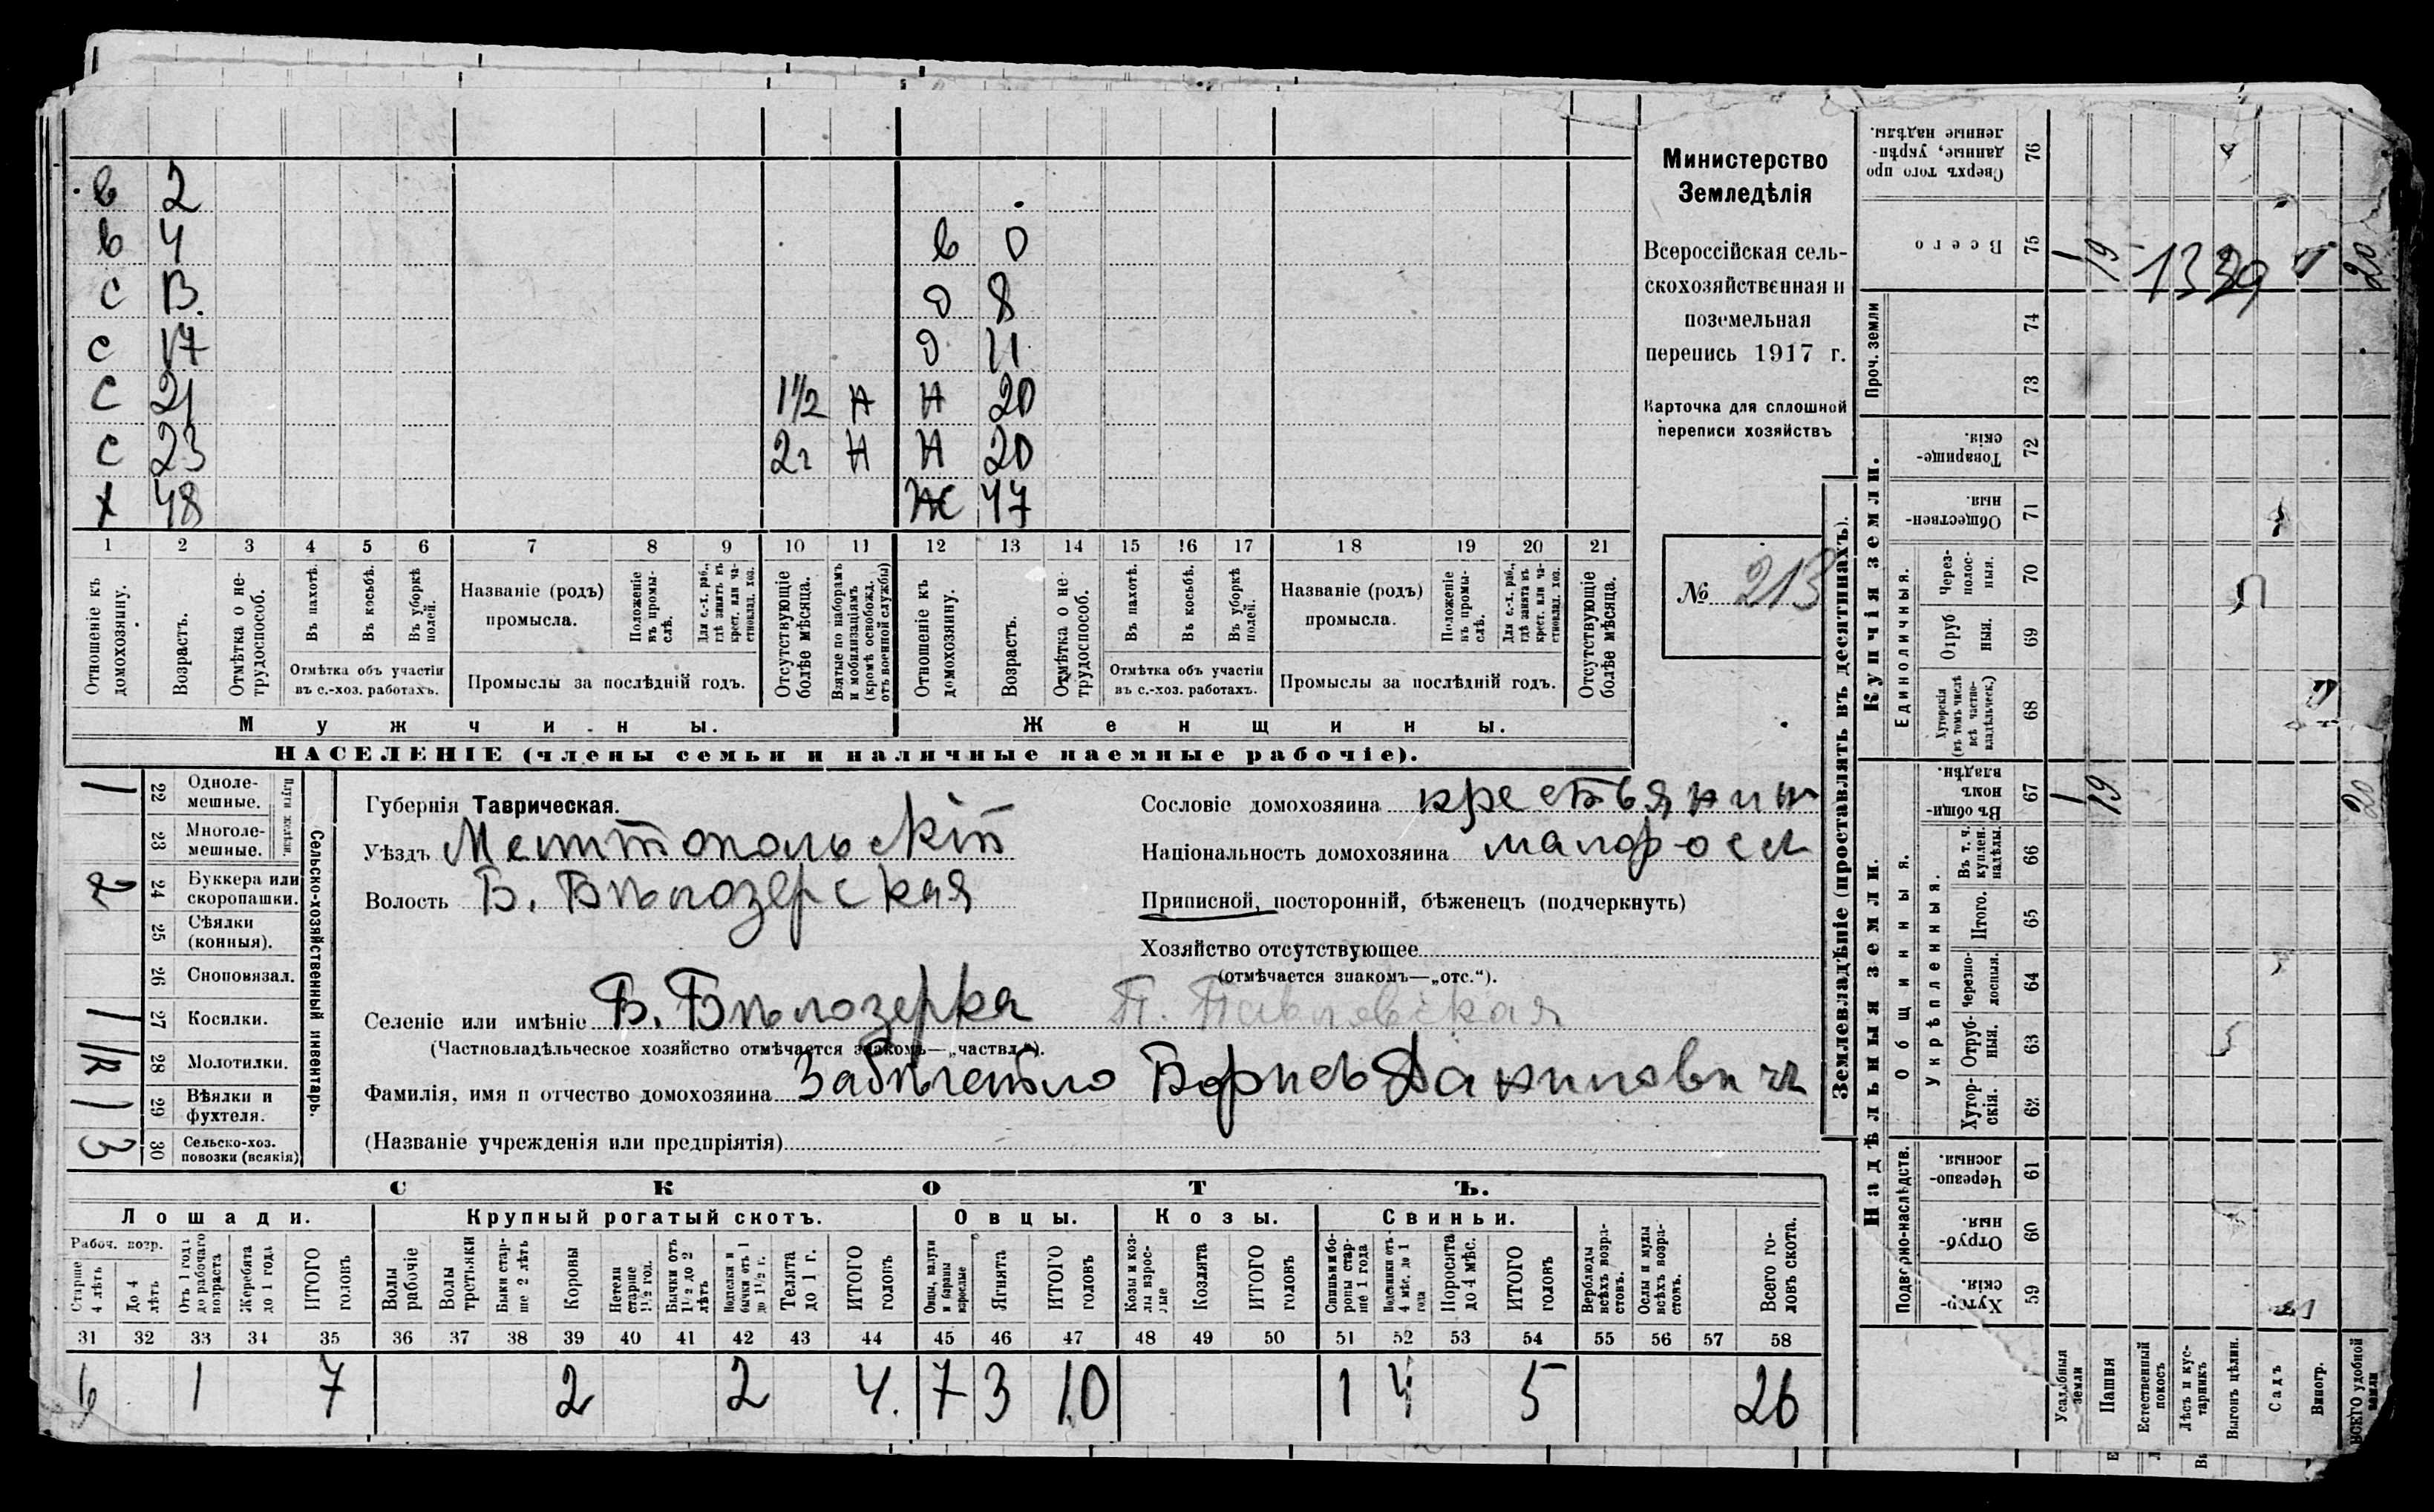 в 2
в 4 в 0
с 13. д 8
с 17 д 11
с 21 1½ н н 20
с 23 2г н н 20
х 48 ж 47
1 2 3 4 5 6 7 8 9 10 11 12 13 14 15 16 17 18 19 20 21
Отношеніе къ домохозяину.
Возрастъ.
Отмѣтка о не-трудоспособ.
Въ пахотѣ.
Въ косьбѣ.
Въ уборкѣ полей.
Отмѣтка объ участіи въ с.-хоз. работахъ.
Названіе (родъ) промысла.
Положеніе въ промы-слѣ.
Для с.-х. раб., гдѣ занятъ въ крест. или ча-стновлад. хоз.
Промыслы за послѣдній годъ.
Отсутствующіе болѣе мѣсяца.
Взятые по наборамъ и мобилизаціямъ (кромѣ освобожд. отъ военной службы)
Отношеніе къ домохозяину.
Возрастъ.
Отмѣтка о не-трудоспособ.
Въ пахотѣ.
Въ косьбѣ.
Въ уборкѣ полей.
Отмѣтка объ участіи въ с.-хоз. работахъ.
Названіе (родъ) промысла.
Положеніе въ промы-слѣ.
Для с.-х. раб., гдѣ занята въ крест. или ча-стновлад. хоз.
Промыслы за послѣдній годъ.
Отсутствующіе болѣе мѣсяца.
Мужчины. Женщины.
НАСЕЛЕНІЕ (члены семьи и наличные наемные рабочіе).
Министерство
Земледѣлія
Всероссійская сель-
скохозяйственная и
поземельная
перепись 1917 г.
Карточка для сплошной
переписи хозяйствъ
№ 213
1 22 Одноле-мешные.
23 Многоле-мешные.
Плуги желѣзн.
2 24 Буккера или скоропашки.
25 Сѣялки (конныя).
26 Сноповязал.
1 27 Косилки.
28 Молотилки.
1 29 Вѣялки и фухтеля.
3 30 Сельско-хоз. повозки (всякія)
Сельско-хозяйственный инвентарь.
Губернія Таврическая.
Уѣздъ Мелитопольскій
Волость Б. Бѣлозерская
Сословіе домохозяина крестьянин
Національность домохозяина малоросс
Приписной, посторонній, бѣженецъ (подчеркнуть)
Хозяйство отсутствующее
(отмѣчается знакомъ—„отс.“).
Селеніе или имѣніе Б. Бѣлозерка П. Павловская
(Частновладѣльческое хозяйство отмѣчается знакомъ—„частвл.“).
Фамилія, имя и отчество домохозяина Борисъ Данилович
(Названіе учрежденія или предпріятія)
СКОТЪ.
Лошади. Крупный рогатый скотъ. Овцы. Козы. Свиньи.
Рабоч. возр.
Старше 4 лѣтъ
До 4 лѣтъ
Отъ 1 года до рабочаго возраста
Жеребята до 1 года
ИТОГО головъ
Волы рабочіе
Волы третьяки
Быки стар-ше 2 лѣтъ
Коровы
Нетели старше 1½ год.
Бычки отъ 1½ до 2 лѣтъ
Подтелки и бычки отъ 1 до 1½ г.
Телята до 1 г.
ИТОГО головъ
Овцы, валухи и бараны взрослые
Ягнята
ИТОГО головъ
Козы и коз-лы взрос-лые
Козлята
ИТОГО головъ
Свиньи и бо-ровы стар-ше 1 года
Подсвинки отъ 4 мѣс. до 1 года
Поросята до 4 мѣс.
ИТОГО головъ
Верблюды всѣхъ возра-стовъ.
Ослы и мулы всѣхъ возра-стовъ.
Всего го-ловъ скота.
31 32 33 34 35 36 37 38 39 40 41 42 43 44 45 46 47 48 49 50 51 52 53 54 55 56 57 58
6 1 7 2 2 4. 7 3 10 1 4 5 26
Землевладѣніе (проставлять въ десятинахъ).
Надѣльныя земли. Купчія земли. Проч. земли
Подворно-наслѣдств. Общинныя. Укрѣпленныя. Единоличныя.
Сверхъ того про-данные, укрѣп-ленные надѣлы. 76
Всего 75 1 19 20
74
73
Товарище-скія. 72
Обществен-ныя. 71
Через-полос-ныя. 70
Отруб ныя. 69
Хуторскія (въ томъ числѣ всѣ частно-владѣльческ.) 68
Въ общи-номъ владѣн. 67 1 19 20
Въ т. ч. куплен. надѣлы. 66
Итого. 65
Черезпо-лосныя. 64
Отруб-ныя. 63
Хутор-скія. 62
Черезпо-лосныя. 61
Отруб-ныя. 60
Хутор-скія. 59
Усадебныя земли
Пашня
Естественный покосъ
Лѣсъ и кус-тарникъ
Выгонъ цѣлин.
Садъ
Виногр.
ВСЕГО удобной земли